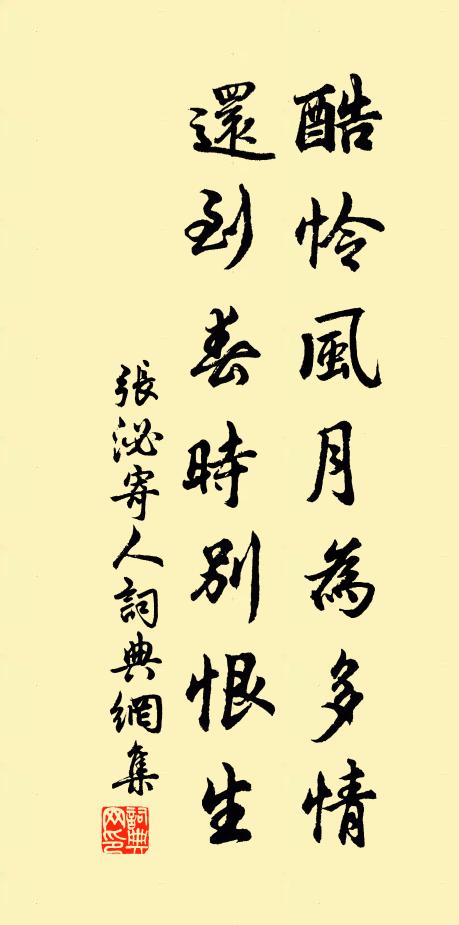 酷怜風月為多情
還到春時別恨生
張泌寄人詞典網集
詞典
网印